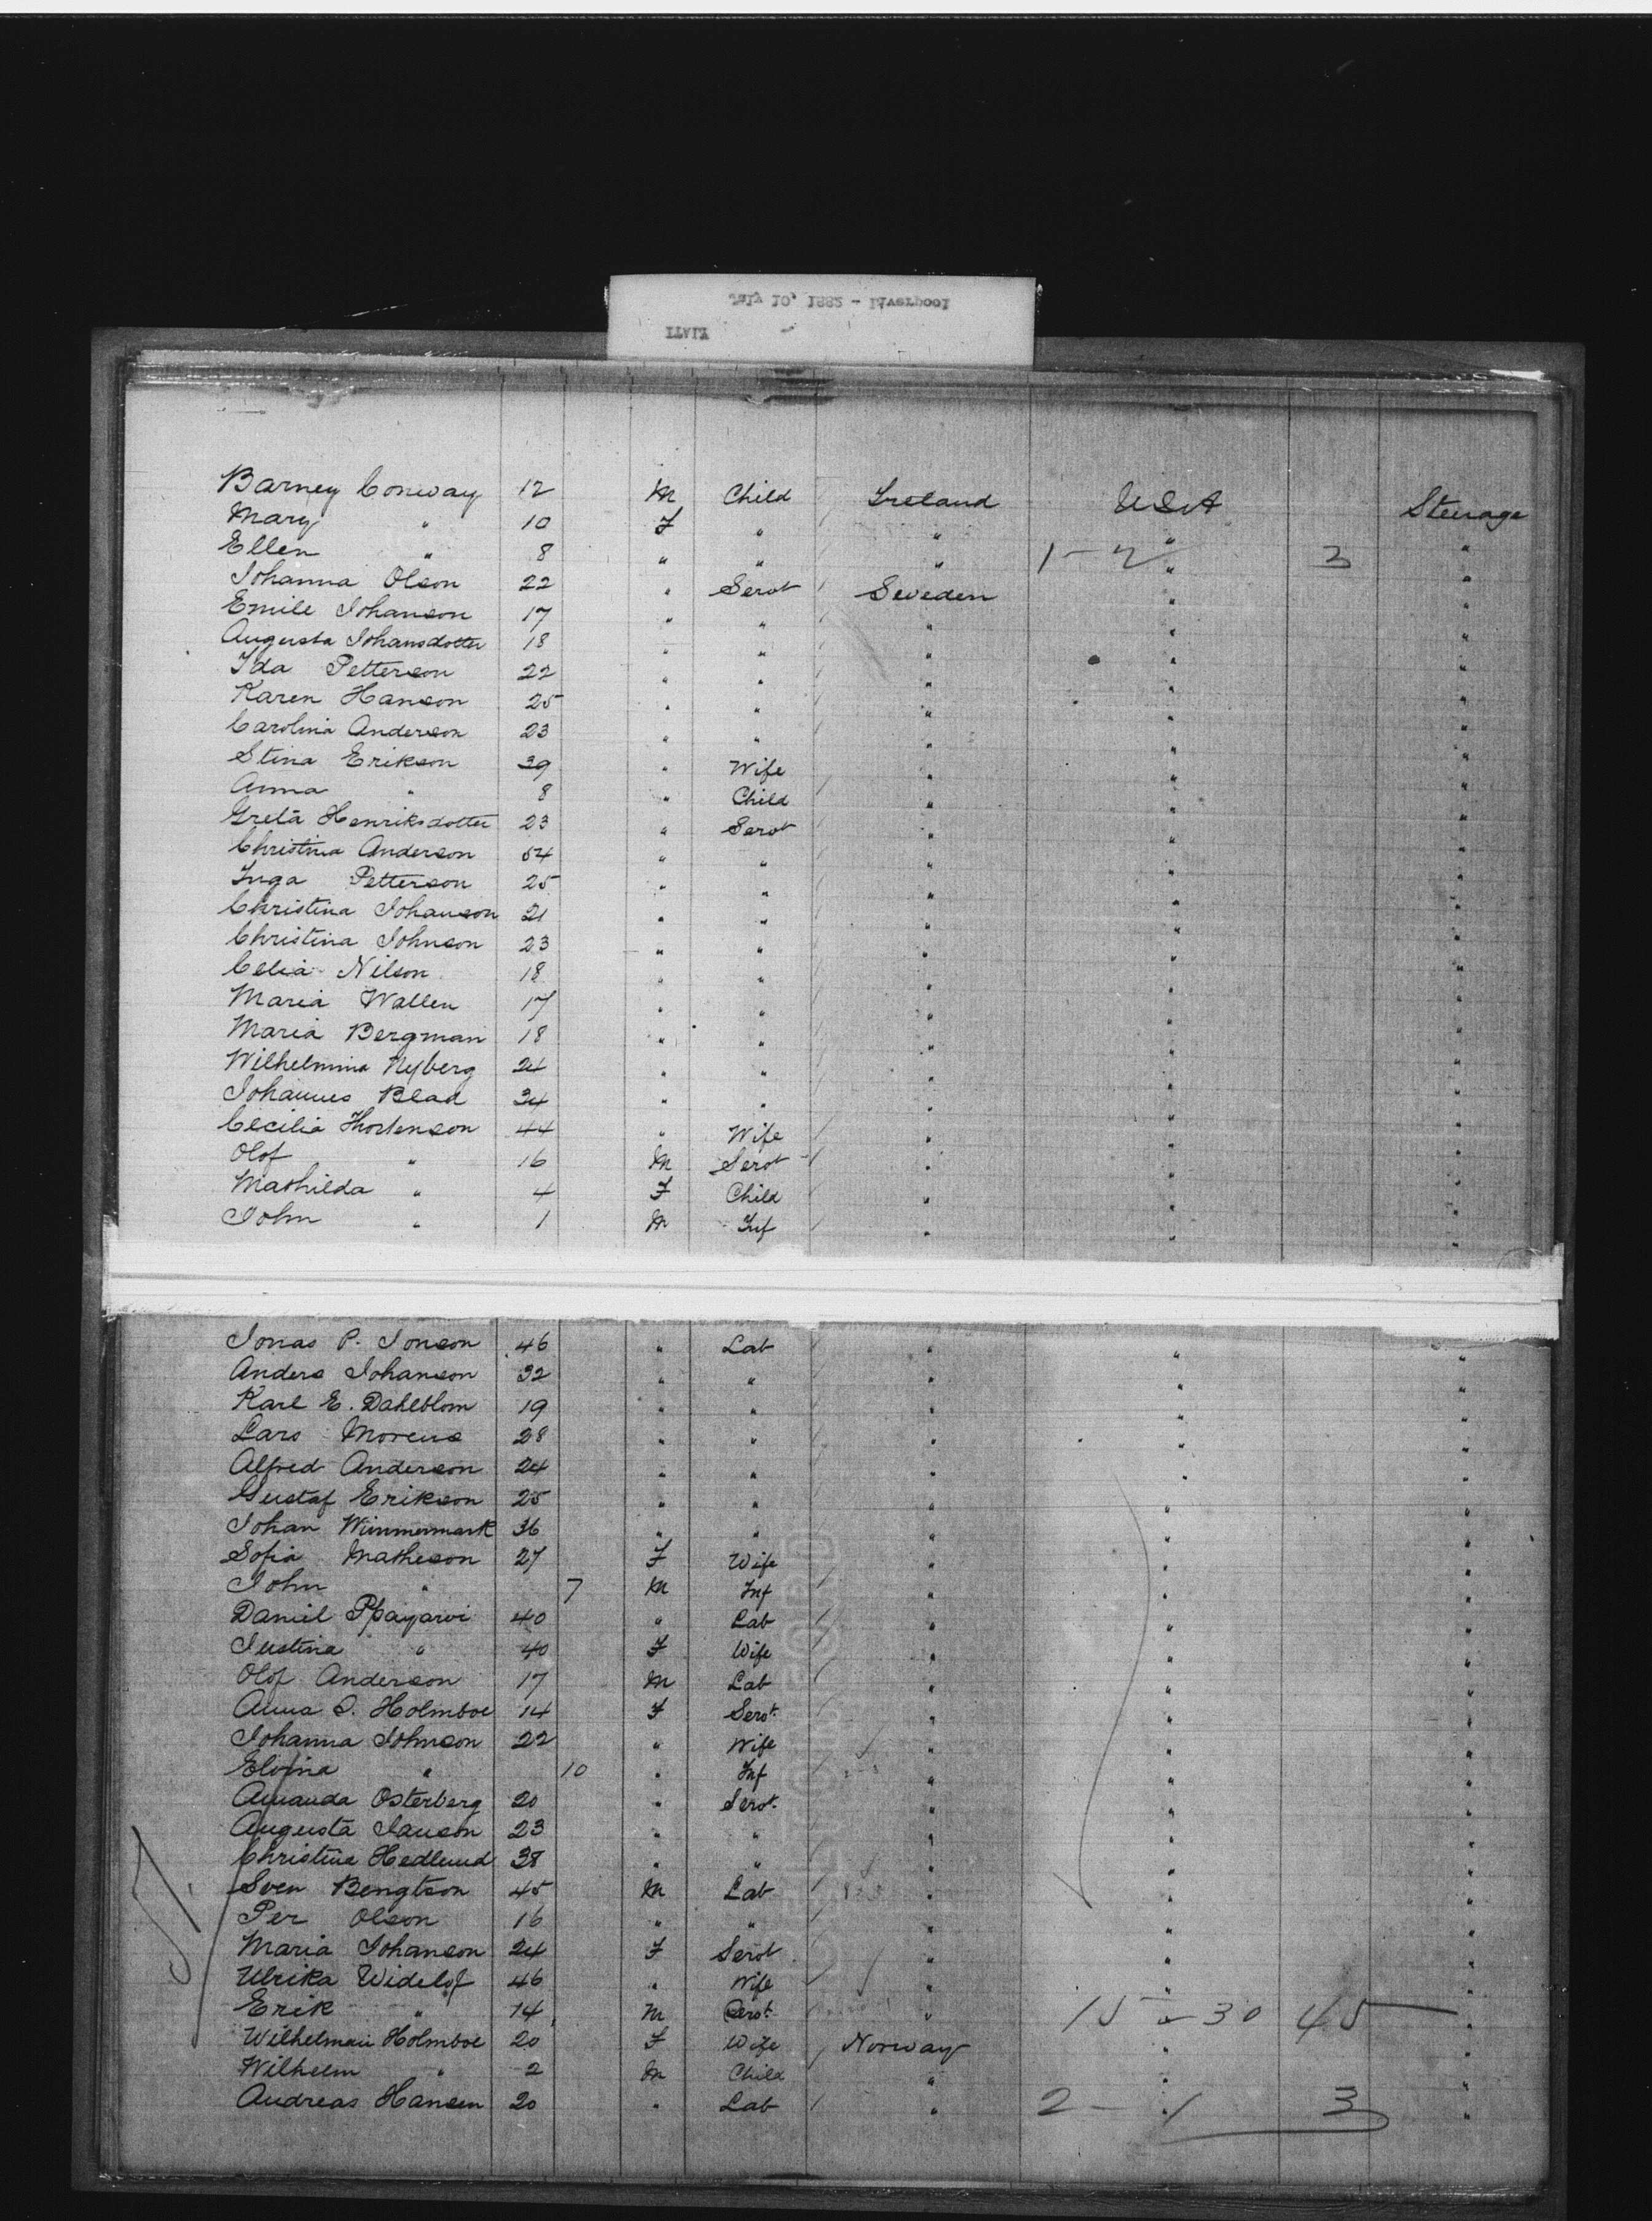 July 10, 1882 - Liverpool
Barney Conway 12 M Child Ireland USA Steerage
Mary " 10 F " " " "
Ellen " 8 " " " 1-2 " 3 "
Johanna Olson 22 " Servt Sweden " "
Emile Johanson 17 " " " " "
Augusta Johansdotter 18 " " " " "
Ida Petterson 22 " " " " "
Karen Hanson 25 " " " " "
Carolina Anderson 23 " " " " "
Stina Erikson 39 " Wife " " "
Anna " 8 " Child " " "
Greta Henriksdotter 23 " Servt " " "
Christina Anderson 54 " " " " "
Inga Petterson 25 " " " " "
Christina Johanson 21 " " " " "
Christina Johnson 23 " " " " "
Celia Nilson 18 " " " " "
Maria Wallen 17 " " " " "
Maria Bergman 18 " " " " "
Wilhelmina Nyberg 24 " " " " "
Johannes Blad 34 " " " " "
Cecilia Thorstenson 44 " Wife " " "
Olof " 16 M Servt " " "
Mathilda " 4 F Child " " "
John " 1 M Inf " " "
Jonas P. Jonson 46 " Lab " " "
Anders Johanson 32 " " " " "
Karl E. Dahlblom 19 " " " " "
Lars Morens 28 " " " " "
Alfred Anderson 24 " " " " "
Gustaf Erikson 25 " " " " "
Johan Wimmermark 36 " " " " "
Sofia Matheson 27 F Wife " " "
John " 7 M Inf " " "
Daniel 40 " Lab " " "
Justina " 40 F Wife " " "
Olof Anderson 17 M Lab " " "
Anna S. Holmboe 14 F Servt " " "
Johanna Johnson 22 " Wife " " "
Elvina " 10 " Inf " " "
Amanda Osterberg 20 " Servt " " "
Augusta Janson 23 " " " " "
Christina Hedlund 38 " " " " "
Sven Bengtson 45 M Lab " " "
Per Olson 16 " " " " "
Maria Johanson 24 F Servt " " "
Ulrika Widelof 46 " Wife " " "
Erik " 14 M Servt " 15 - 30 45 "
Wilhelmain Holmboe 20 F Wife Norway " "
Wilhelm " 2 M Child " " "
Andreas Hansen 20 " Lab " 2 - 1 3 "